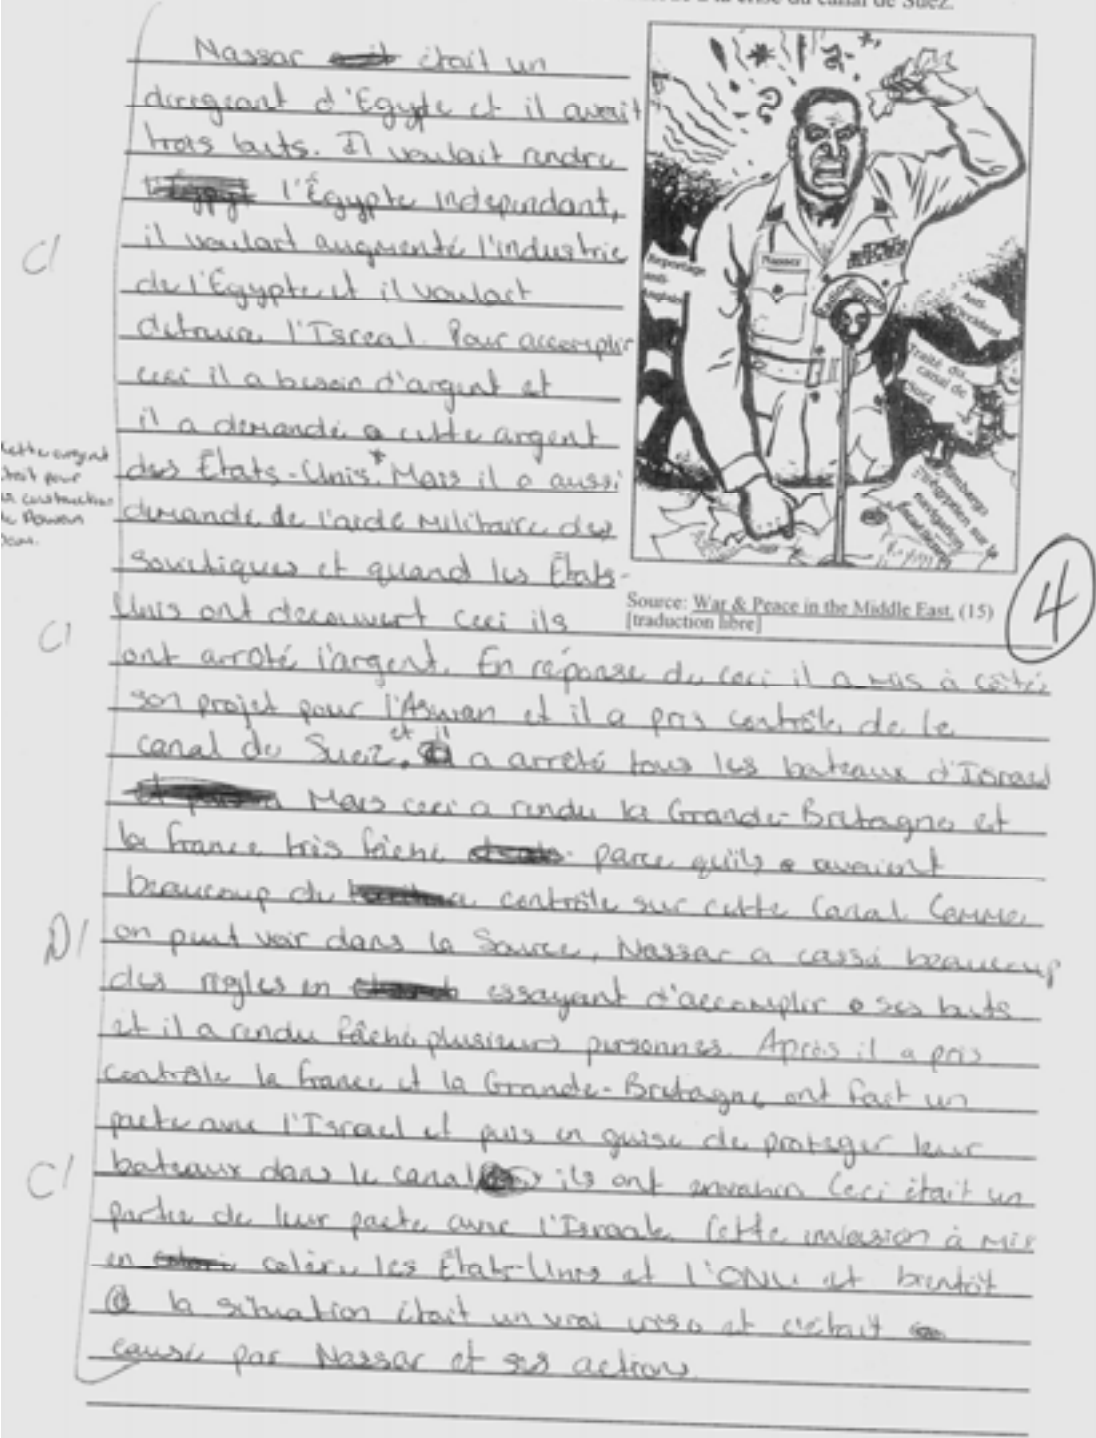 à la crise du canal de Suez.
Nassar était un
diregeant d'Egypte et il avait
trois buts. Il voulait rendre
l'Égypte independant,
il voulait augmenté l'industrie
de l'Égypte et il voulait
detruire l'Isreal. Pour accomplir
ceci il a besoin d'argent et
il a demandé cette argent
des États-Unis.* Mais il a aussi
demandé de l'aide militaire des
Sovietiques et quand les États-
Unis ont decouvert ceci ils
ont arrêté l'argent. En réponse du ceci il a mis à côté
son projet pour l'Aswan et il a pris contrôle de le
canal de Suez, et il a arrêté tous les bateaux d'Israel
Mais ceci a rendu la Grande-Bretagne et
la france très fâché parce qu'ils avaient
beaucoup de contrôle sur cette Canal. Comme
on peut voir dans la Source, Nassar a cassé beaucoup
des règles en essayant d'accomplir ses buts
et il a rendu fâché plusieurs personnes. Après il a pris
contrôle la france et la Grande-Bretagne ont fait un
pacte avec l'Israel et puis en guise de proteger leur
bateaux dans le canal ils ont Ceci était un
partie de leur pacte avec Cette invasion à mis
en colère les États-Unis et l'ONU et bientôt
la situation était un vrai et c'était
causé par Nassar et ses actions.
C/
C/
D/
C/
cette argent
était pour
la construction
Dam.
Nasser
Reportage
anti-
Anti-
Occident
Traité du
canal de
Suez
Embargo
égyptien sur la
navigation
Source: War & Peace in the Middle East. (15)
[traduction libre]
4